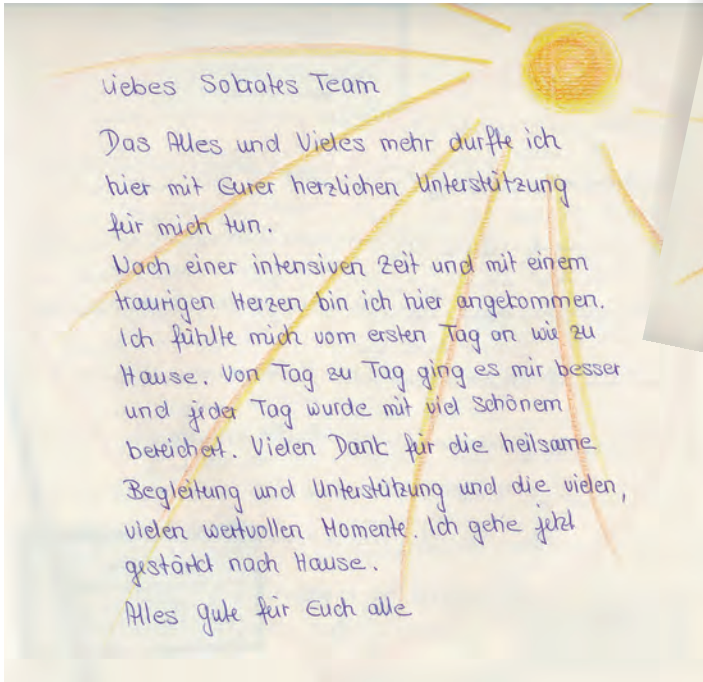 Liebes Sokrates Team
Das Alles und Vieles mehr durfte ich
hier mit Eurer herzlichen Unterstützung
für mich tun.
Nach einer intensiven Zeit und mit einem
traurigen Herzen bin ich hier angekommen.
Ich fühlte mich vom ersten Tag an wie zu
Hause. Von Tag zu Tag ging es mir besser
und jeder Tag wurde mit viel Schönem
bereichert. Vielen Dank für die heilsame
Begleitung und Unterstützung und die vielen,
vielen wertvollen Momente. Ich gehe jetzt
gestärkt nach Hause.
Alles gute für Euch alle